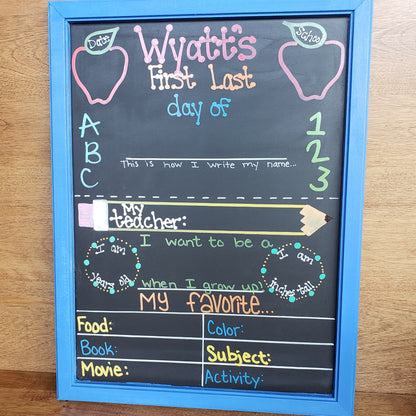 Date
Wyatt's
School
First Last
day of
A
B
C
1
2
3
This is how I write my name...
My
teacher:
I want to be a
I am
years old
I am
inches tall
when I grow up!
My favorite...
Food:
Color:
Book:
Subject:
Movie:
Activity: